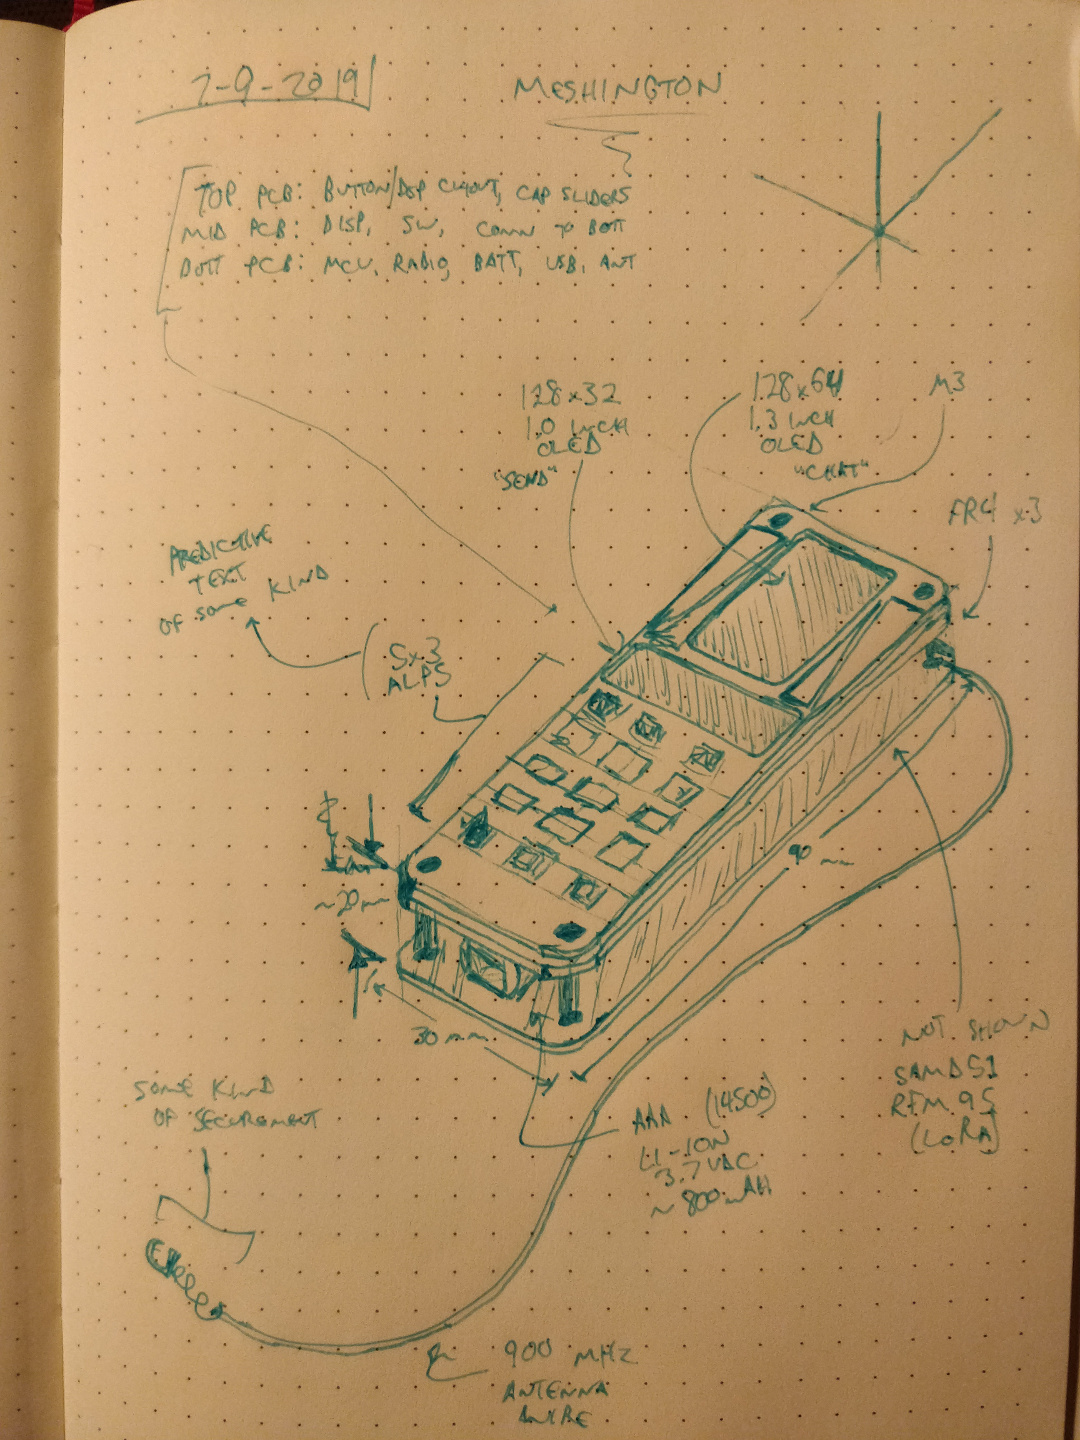 7-9-2019
MESHINGTON
TOP PCB: BUTTON/DSP CUTOUT, CAP SLIDERS
MID PCB: DISP, SW, CONN TO BOTT
BOTT PCB: MCU, RADIO, BATT, USB, ANT
128x32
1.0 INCH
OLED
"SEND"
128x64
1.3 INCH
OLED
"CHAT"
M3
FR4 x3
PREDICTIVE
TEXT
OF SOME KIND
5x3
ALPS
~20mm
90 mm
30 mm
NOT SHOWN
SAMD51
RFM95
(LoRA)
SOME KIND
OF SECUREMENT
AAA (14500)
LI-ION
3.7 VDC
~800mAH
900 MHZ
ANTENNA
WIRE